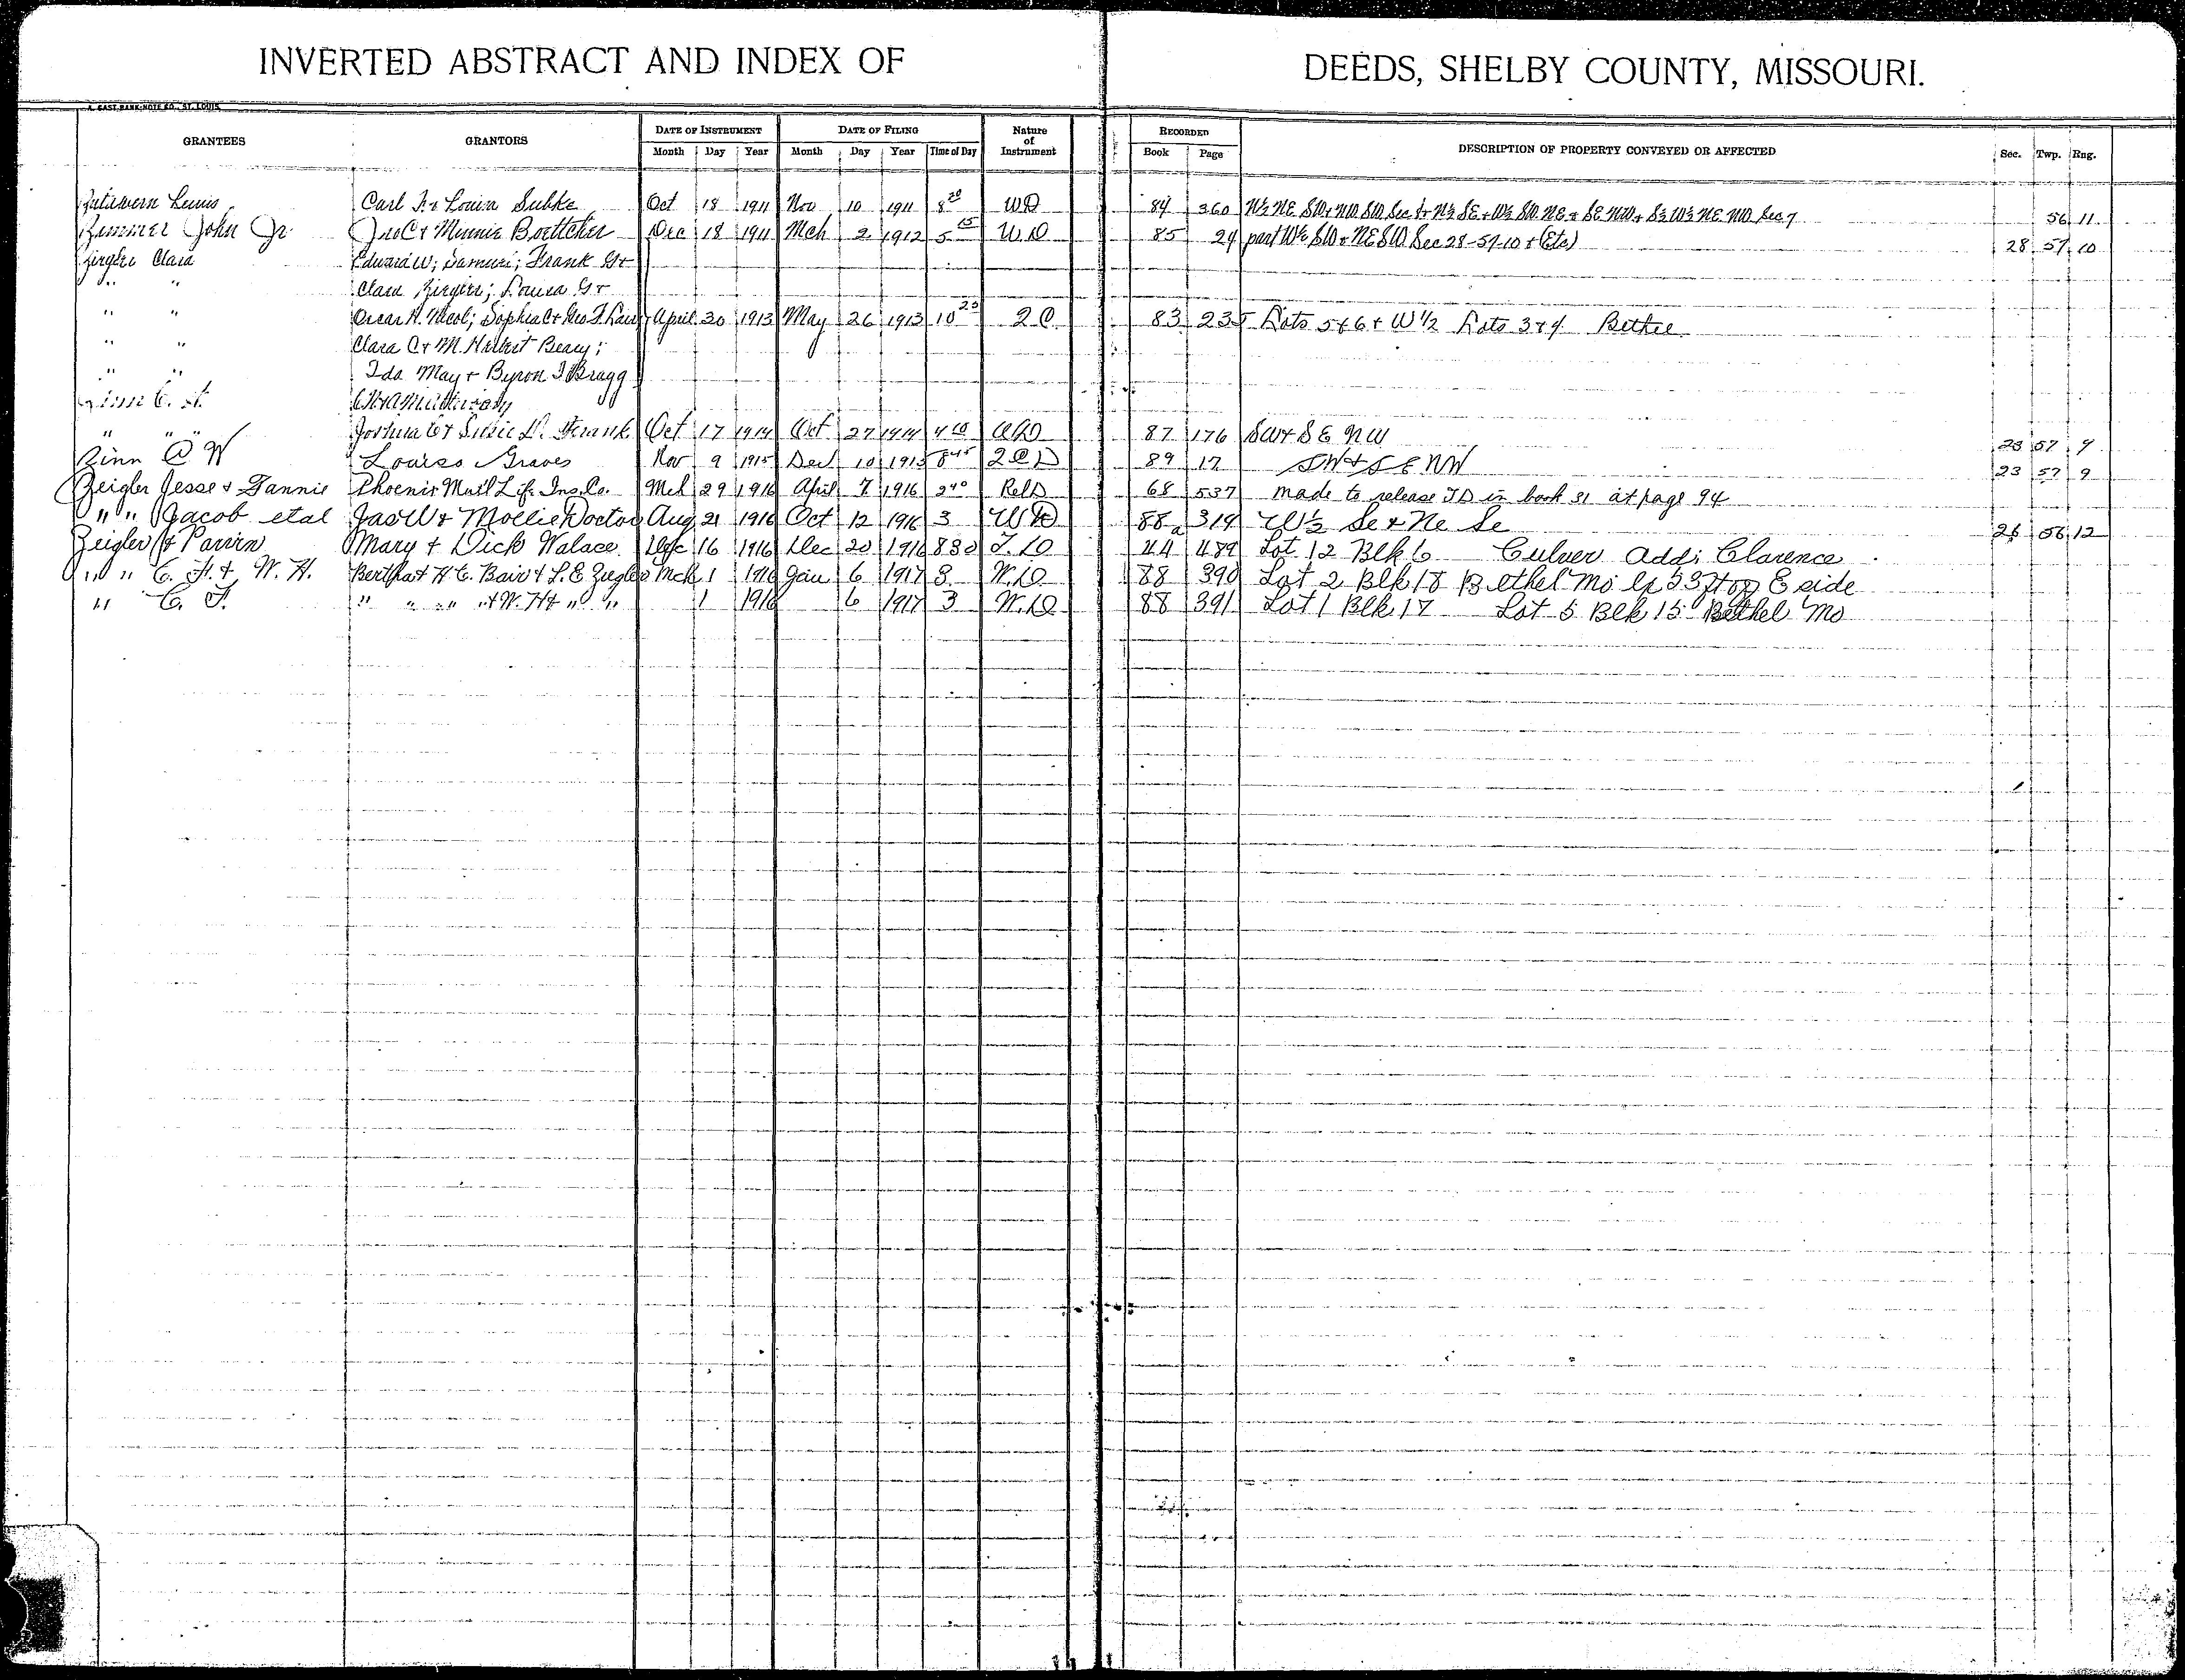 INVERTED ABSTRACT AND INDEX OF DEEDS, SHELBY COUNTY, MISSOURI.
GRANTEES GRANTORS DATE OF INSTRUMENT DATE OF FILING Nature of Instrument RECORDED DESCRIPTION OF PROPERTY CONVEYED OR AFFECTED Sec. Twp. Rng.
Month Day Year Month Day Year Time of Day Book Page
Louis Carl F. & Louisa Lubke Oct 18 1911 Nov 10 1911 8 20 WD 84 360 N½ NE SW + NW SW Sec N½ SE + W½ SW NE + SE NW + S½ W½ NE NW Sec 7 56 11
Zimmer John Jr. Jno C & Minnie Boettcher Dec 18 1911 Mch 2 1912 5 15 W.D 85 24 part W½ SW + NE SW Sec 28-57-10 + (Etc) 28 57 10
Zeigler Clara Edward W; Samuel; Frank G +
" " Clara Zeigler; Louisa G +
" " Oscar H. Nicol; Sophia C + Geo F. April 30 1913 May 26 1913 10 25 2C 83 235 Lots 5+6 + W 1/2 Lots 3+4 Bethel
" " Clara C + M. Herbert Beacy;
" " Ida May + Byron I Bragg
Zinn C. W.
" " " Joshua & Susie D. Frank Oct 17 1914 Oct 27 1914 4 10 87 176 SW + SE NW 23 57 9
Zinn C W Louisa Graves Nov 9 1915 Dec 10 1915 8 45 2CD 89 17 SW + SE NW 23 57 9
Zeigler Jesse & Fannie Phoenix Mut'l Life Ins. Co. Mch 29 1916 April 7 1916 2 40 RelD 68 537 made to release TD in book 31 at page 94
" " Jacob etal Jas W & Mollie Doctor Aug 21 1916 Oct 12 1916 3 WD 88 319 W½ Se & Ne Se 26 56 12
Zeigler & Parvin Mary + Dick Walace Dec 16 1916 Dec 20 1916 8 30 T.D 44 489 Lot 12 Blk 6 Culver Add; Clarence
" " C. F. + W. H. Bertha + H C. Bair + L. E Zeigler Mch 1 1916 Jan 6 1917 3 W.D 88 390 Lot 2 Blk 18 Bethel Mo Ex 23 ft off E side
" C. F. " " " + W. H + " " 1 1916 6 1917 3 W.D 88 391 Lot 1 Blk 17 Lot 5 Blk 15 Bethel Mo